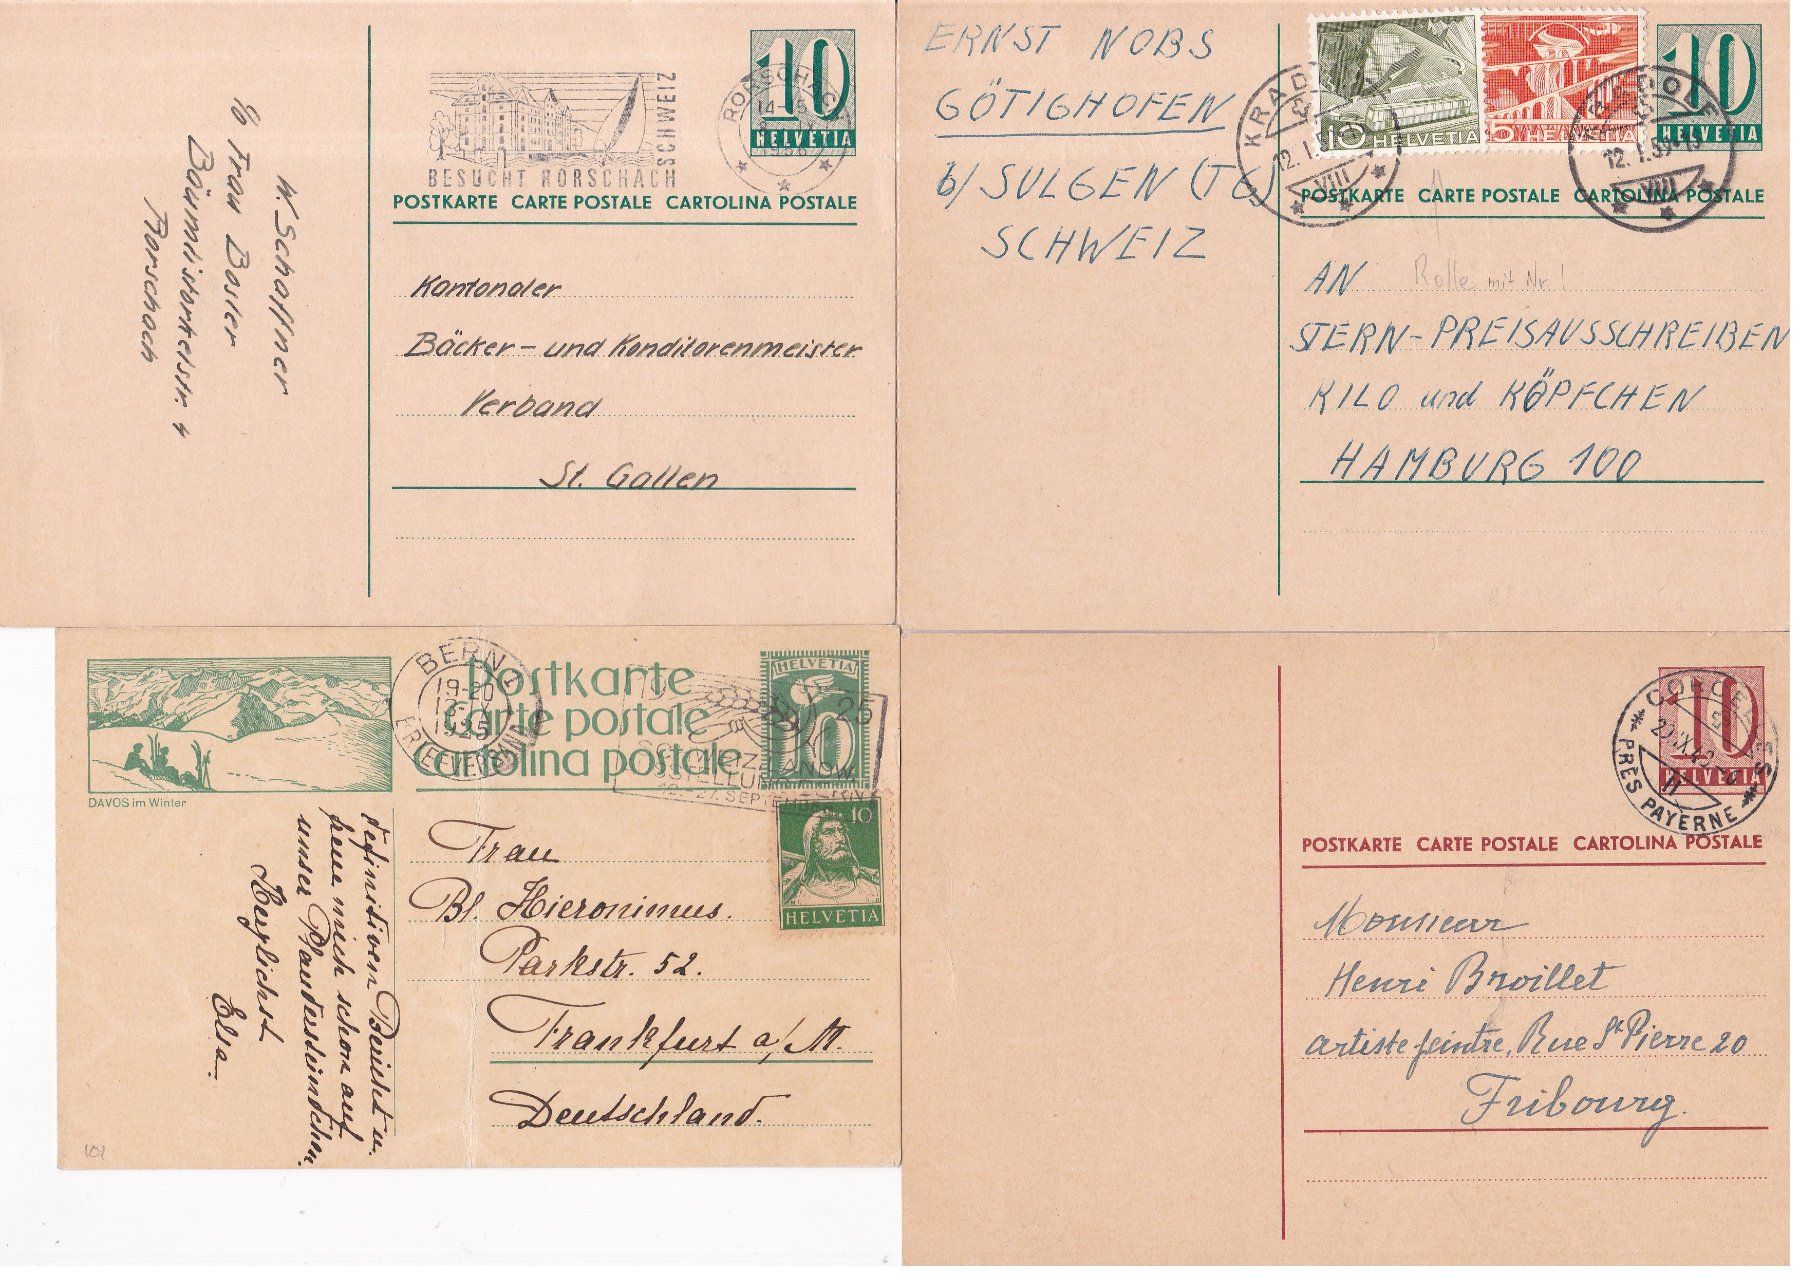 10
HELVETIA
RORSCHACH
14-15
BESUCHT RORSCHACH
SCHWEIZ
POSTKARTE CARTE POSTALE CARTOLINA POSTALE
W. Schaffner
Rorschach
Kantonaler
Bäcker- und Konditorenmeister
Verband
St. Gallen
ERNST NOBS
GÖTIGHOFEN
b/ SULGEN (TG)
SCHWEIZ
10 HELVETIA
5 HELVETIA
10
HELVETIA
12. I. 59
VIII
VIII
POSTKARTE CARTE POSTALE CARTOLINA POSTALE
Rolle mit Nr!
AN
STERN-PREISAUSSCHREIBEN
KILO und KÖPFCHEN
HAMBURG 100
DAVOS im Winter
BERN 1
19-20
1925
Postkarte
Carte postale
Cartolina postale
HELVETIA
10
25
27. SEPTEMBER
10
HELVETIA
definitiven Bericht u.
freue mich schon auf
unser Plauderstündchen.
Herzlichst
Elsa.
Frau
Bl. Hieronimus.
Parkstr. 52.
Frankfurt a/M.
Deutschland.
101
10
HELVETIA
CORCELLES
PRÈS PAYERNE
POSTKARTE CARTE POSTALE CARTOLINA POSTALE
Monsieur
Henri Broillet
artiste peintre, Rue St Pierre 20
Fribourg.